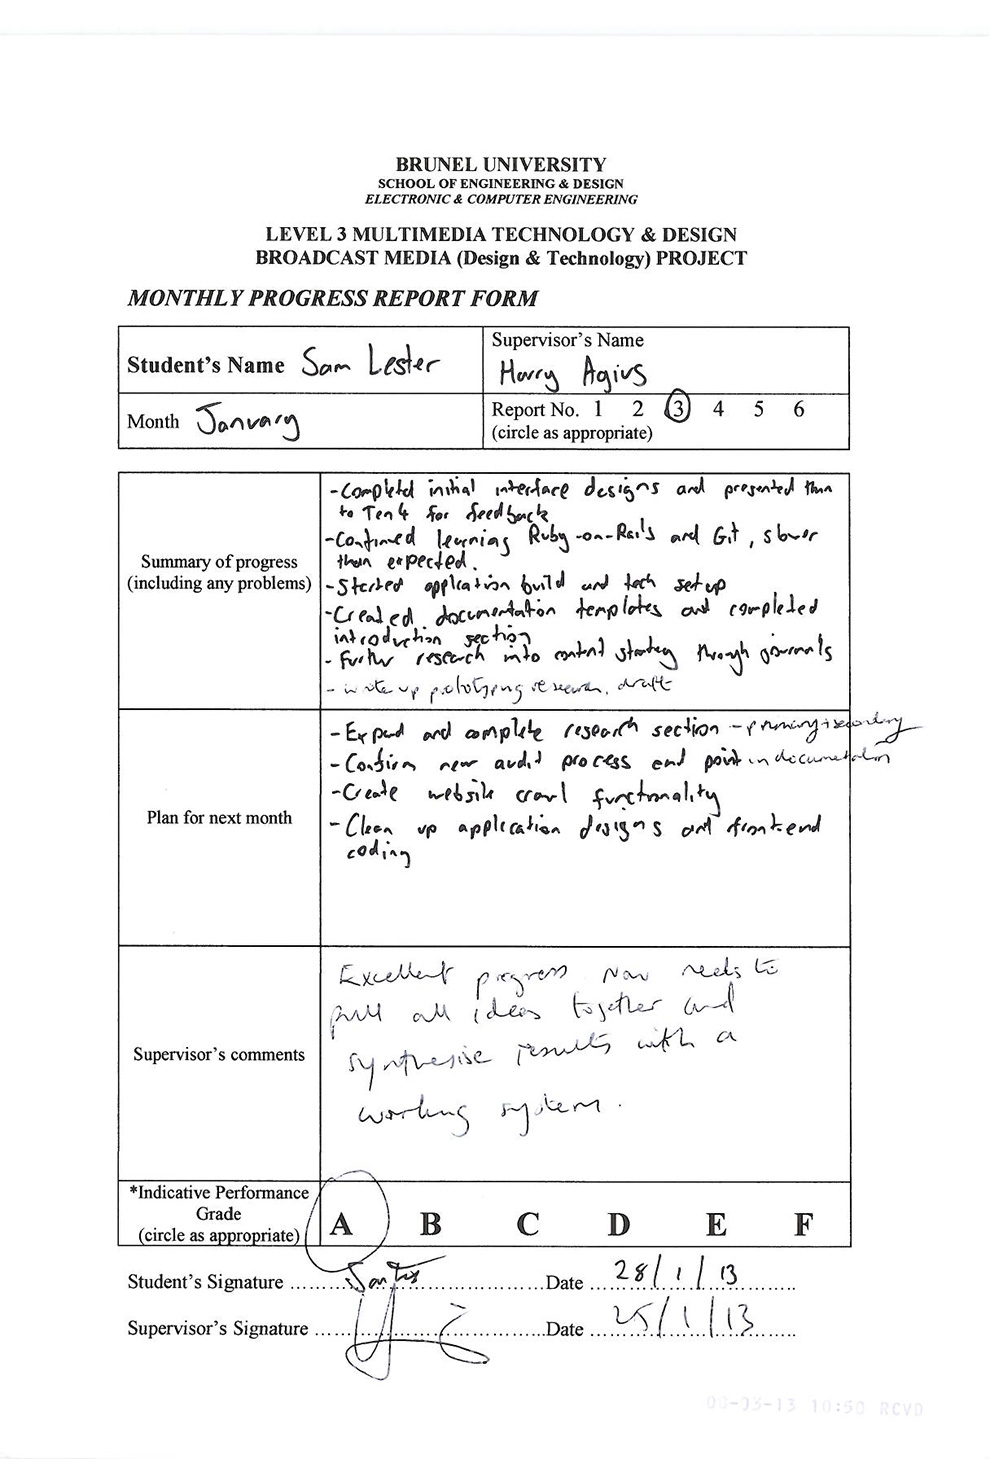 BRUNEL UNIVERSITY
SCHOOL OF ENGINEERING & DESIGN
ELECTRONIC & COMPUTER ENGINEERING
LEVEL 3 MULTIMEDIA TECHNOLOGY & DESIGN
BROADCAST MEDIA (Design & Technology) PROJECT
MONTHLY PROGRESS REPORT FORM
Student's Name Sam Lester
Supervisor's Name
Harry Agius
Month January
Report No. 1 2 3 4 5 6
(circle as appropriate)
Summary of progress
(including any problems)
- Completed initial interface designs and presented them
to Ten4 for feedback
- Continued learning Ruby-on-Rails and Git, slower
than expected.
- Started application build and tech setup
- Created documentation templates and completed
introduction section
- Further research into content strategy through journals
- write up prototyping research, draft
Plan for next month
- Expand and complete research section - primary + secondary
- Confirm new audit process end point in documentation
- Create website crawl functionality
- Clean up application designs and front-end
coding
Supervisor's comments
Excellent progress Now needs to
pull all ideas together and
synthesise results with a
working system.
*Indicative Performance
Grade
(circle as appropriate)
A B C D E F
Student's Signature Date 28/1/13
Supervisor's Signature Date 25/1/13
-03-13 10:50 RCVD